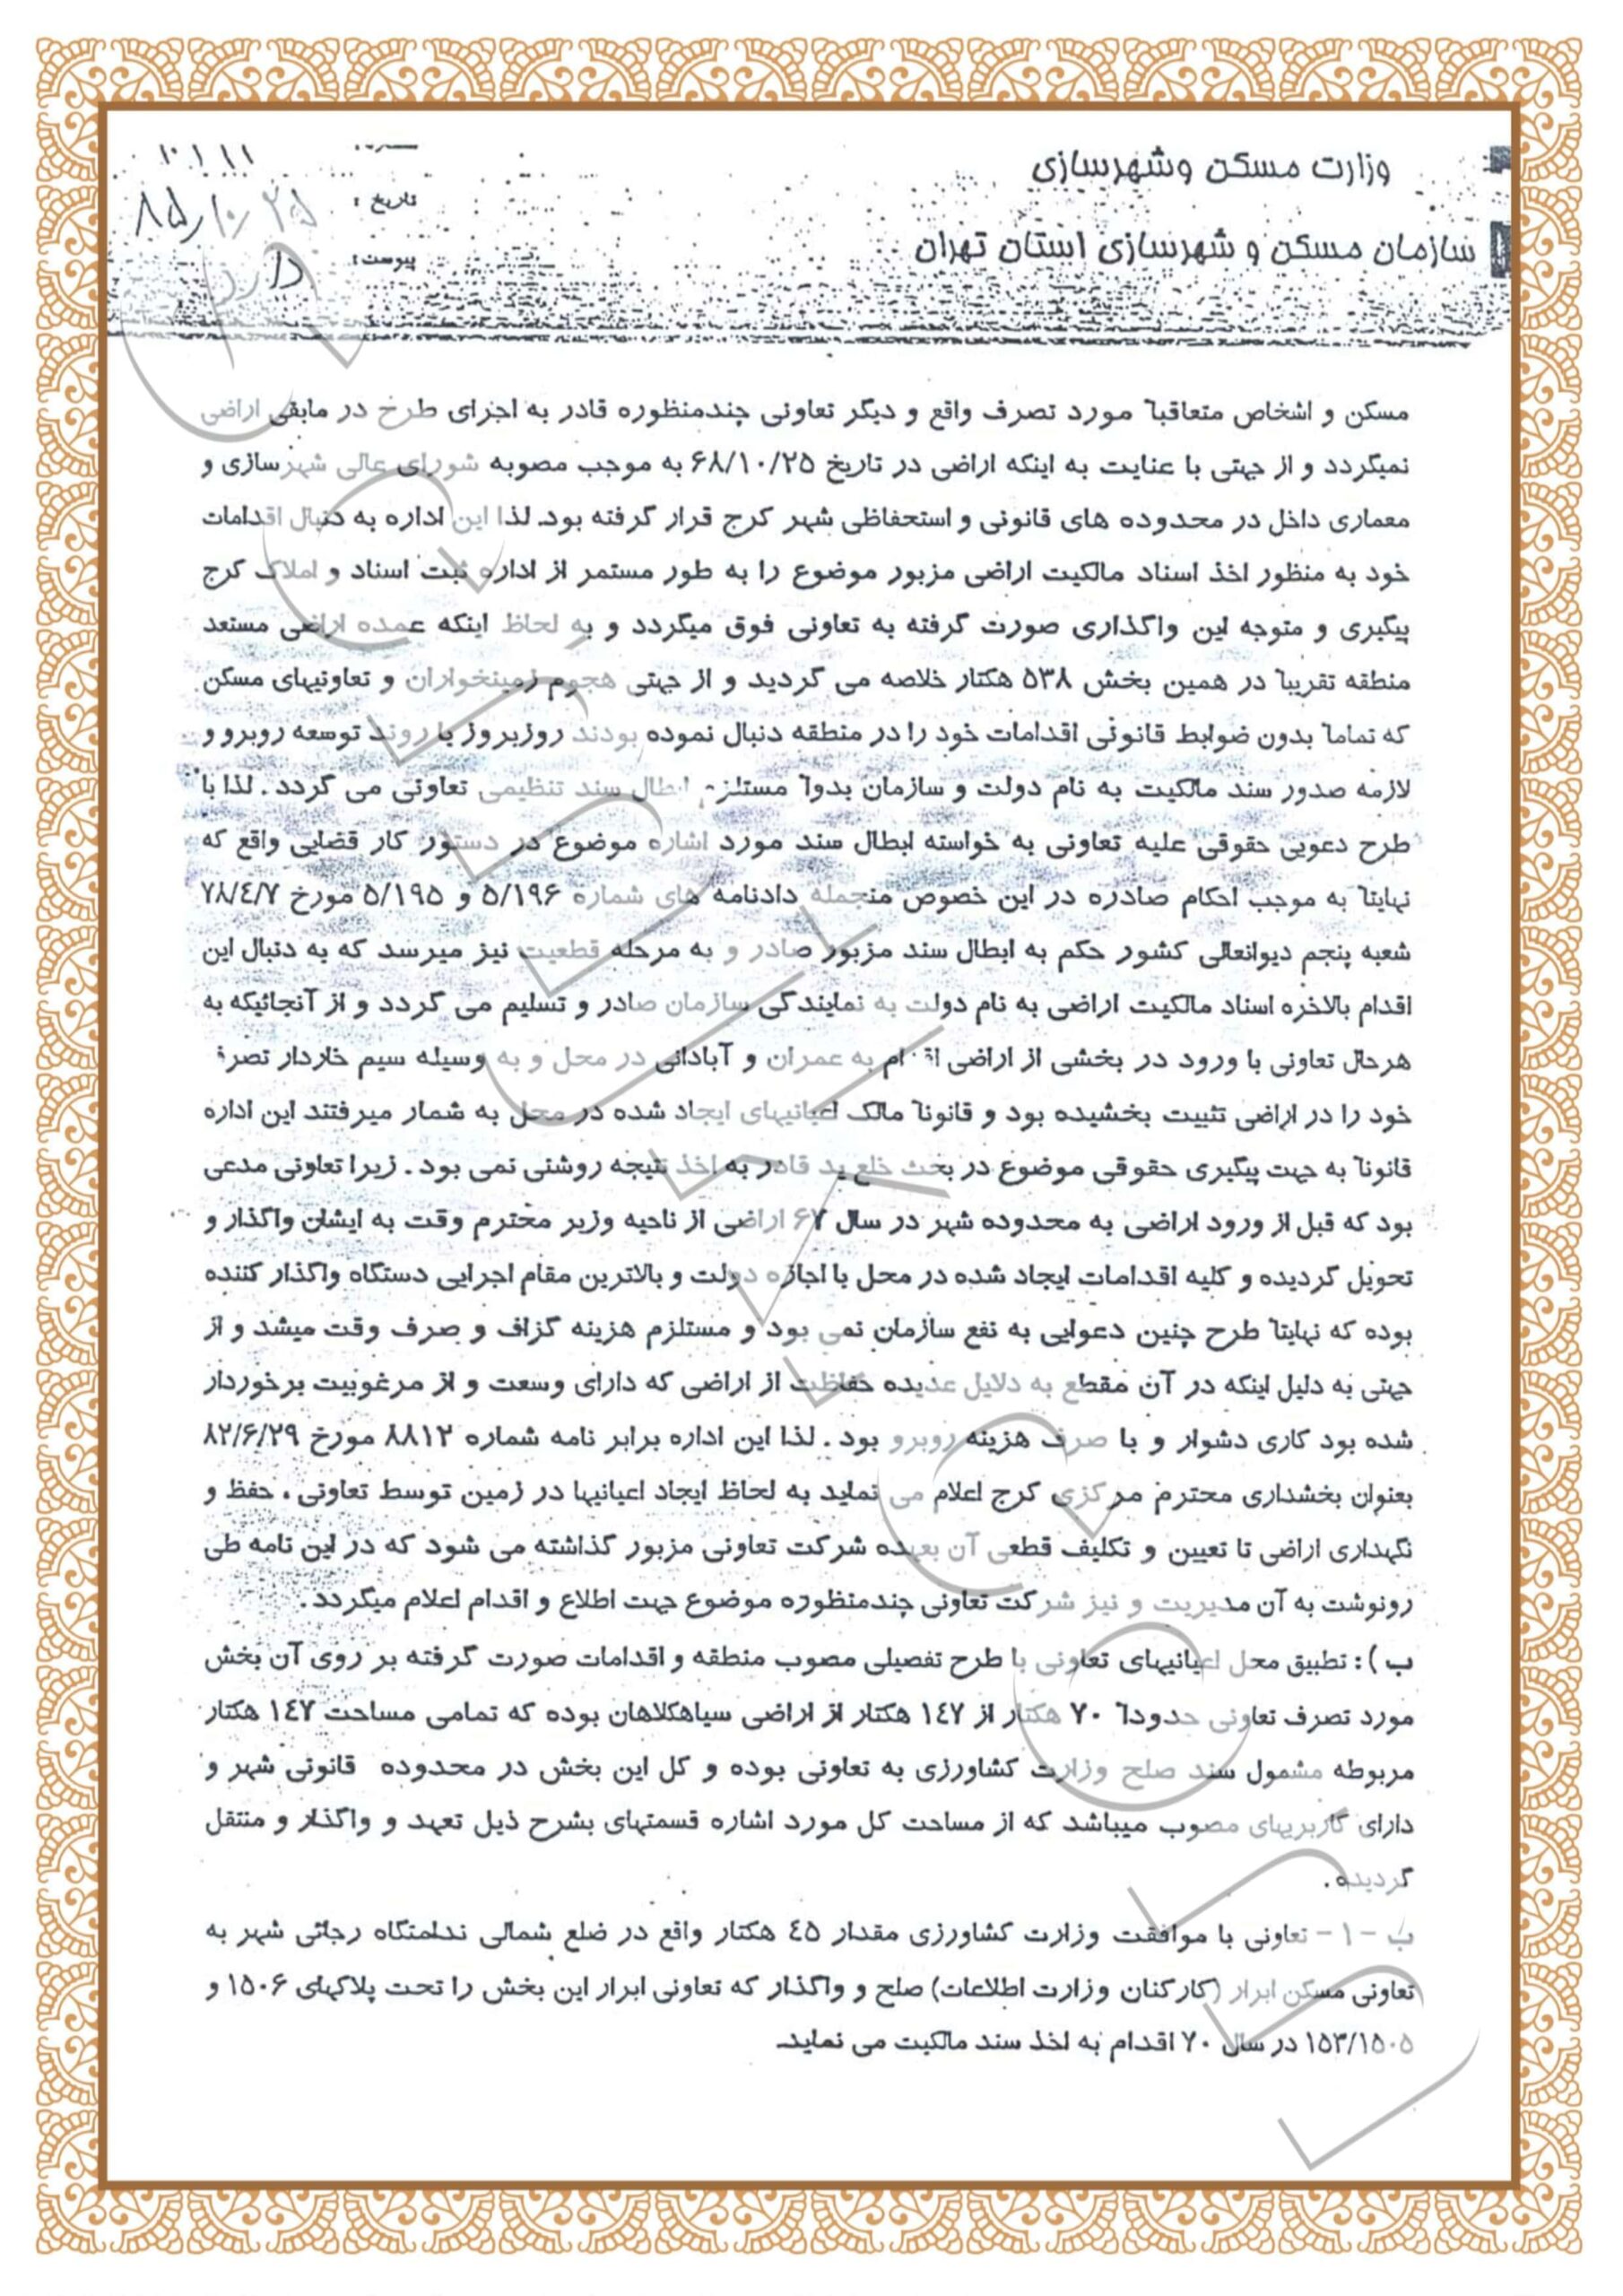 وزارت مسکن وشهرسازی
سازمان مسکن و شهرسازی استان تهران
تاریخ : ۸۵/۱۰/۲۵
پیوست: دارد
مسکن و اشخاص متعاقباً مورد تصرف واقع و دیگر تعاونی چندمنظوره قادر به اجرای طرح در مابقی اراضی
نمیگردد و از جهتی با عنایت به اینکه اراضی در تاریخ ۶۸/۱۰/۲۵ به موجب مصوبه شورای عالی شهرسازی و
معماری داخل در محدوده های قانونی و استحفاظی شهر کرج قرار گرفته بود. لذا این اداره به دنبال اقدامات
خود به منظور اخذ اسناد مالکیت اراضی مزبور موضوع را به طور مستمر از اداره ثبت اسناد و املاک کرج
پیگیری و متوجه این واگذاری صورت گرفته به تعاونی فوق میگردد و به لحاظ اینکه عمده اراضی مستعد
منطقه تقریباً در همین بخش ۵۳۸ هکتار خلاصه می گردید و از جهتی هجوم زمینخواران و تعاونیهای مسکن
که تماماً بدون ضوابط قانونی اقدامات خود را در منطقه دنبال نموده بودند روزبروز با روند توسعه روبرو و
لازمه صدور سند مالکیت به نام دولت و سازمان بدواً مستلزم ابطال سند تنظیمی تعاونی می گردد . لذا با
طرح دعویی حقوقی علیه تعاونی به خواسته ابطال سند مورد اشاره موضوع در دستور کار قضایی واقع که
نهایتاً به موجب احکام صادره در این خصوص منجمله دادنامه های شماره ۵/۱۹۶ و ۵/۱۹۵ مورخ ۷۸/٤/۷
شعبه پنجم دیوانعالی کشور حکم به ابطال سند مزبور صادر و به مرحله قطعیت نیز میرسد که به دنبال این
اقدام بالاخره اسناد مالکیت اراضی به نام دولت به نمایندگی سازمان صادر و تسلیم می گردد و از آنجائیکه به
هرحال تعاونی با ورود در بخشی از اراضی اقدام به عمران و آبادانی در محل و به وسیله سیم خاردار تصرف
خود را در اراضی تثبیت بخشیده بود و قانوناً مالک اعیانیهای ایجاد شده در محل به شمار میرفتند این اداره
قانوناً به جهت پیگیری حقوقی موضوع در بحث خلع ید قادر به اخذ نتیجه روشنی نمی بود . زیرا تعاونی مدعی
بود که قبل از ورود اراضی به محدوده شهر در سال ۶۷ اراضی از ناحیه وزیر محترم وقت به ایشان واگذار و
تحویل گردیده و کلیه اقدامات ایجاد شده در محل با اجازه دولت و بالاترین مقام اجرایی دستگاه واگذار کننده
بوده که نهایتاً طرح چنین دعوایی به نفع سازمان نمی بود و مستلزم هزینه گزاف و صرف وقت میشد و از
جهتی به دلیل اینکه در آن مقطع به دلایل عدیده حفاظت از اراضی که دارای وسعت و از مرغوبیت برخوردار
شده بود کاری دشوار و با صرف هزینه روبرو بود . لذا این اداره برابر نامه شماره ۸۸۱۲ مورخ ۸۲/۶/۲۹
بعنوان بخشداری محترم مرکزی کرج اعلام می نماید به لحاظ ایجاد اعیانیها در زمین توسط تعاونی ، حفظ و
نگهداری اراضی تا تعیین و تکلیف قطعی آن بعهده شرکت تعاونی مزبور گذاشته می شود که در این نامه طی
رونوشت به آن مدیریت و نیز شرکت تعاونی چندمنظوره موضوع جهت اطلاع و اقدام اعلام میگردد .
ب ) : تطبیق محل اعیانیهای تعاونی با طرح تفصیلی مصوب منطقه و اقدامات صورت گرفته بر روی آن بخش
مورد تصرف تعاونی حدوداً ۷۰ هکتار از ۱٤۷ هکتار از اراضی سیاهکلاهان بوده که تمامی مساحت ۱٤۷ هکتار
مربوطه مشمول سند صلح وزارت کشاورزی به تعاونی بوده و کل این بخش در محدوده قانونی شهر و
دارای کاربریهای مصوب میباشد که از مساحت کل مورد اشاره قسمتهای بشرح ذیل تعهد و واگذار و منتقل
گردیده .
ب -۱- تعاونی با موافقت وزارت کشاورزی مقدار ٤۵ هکتار واقع در ضلع شمالی ندامتگاه رجائی شهر به
تعاونی مسکن ابرار (کارکنان وزارت اطلاعات) صلح و واگذار که تعاونی ابرار این بخش را تحت پلاکهای ۱۵۰۶ و
۱۵۳/۱۵۰۵ در سال ۷۰ اقدام به اخذ سند مالکیت می نماید.